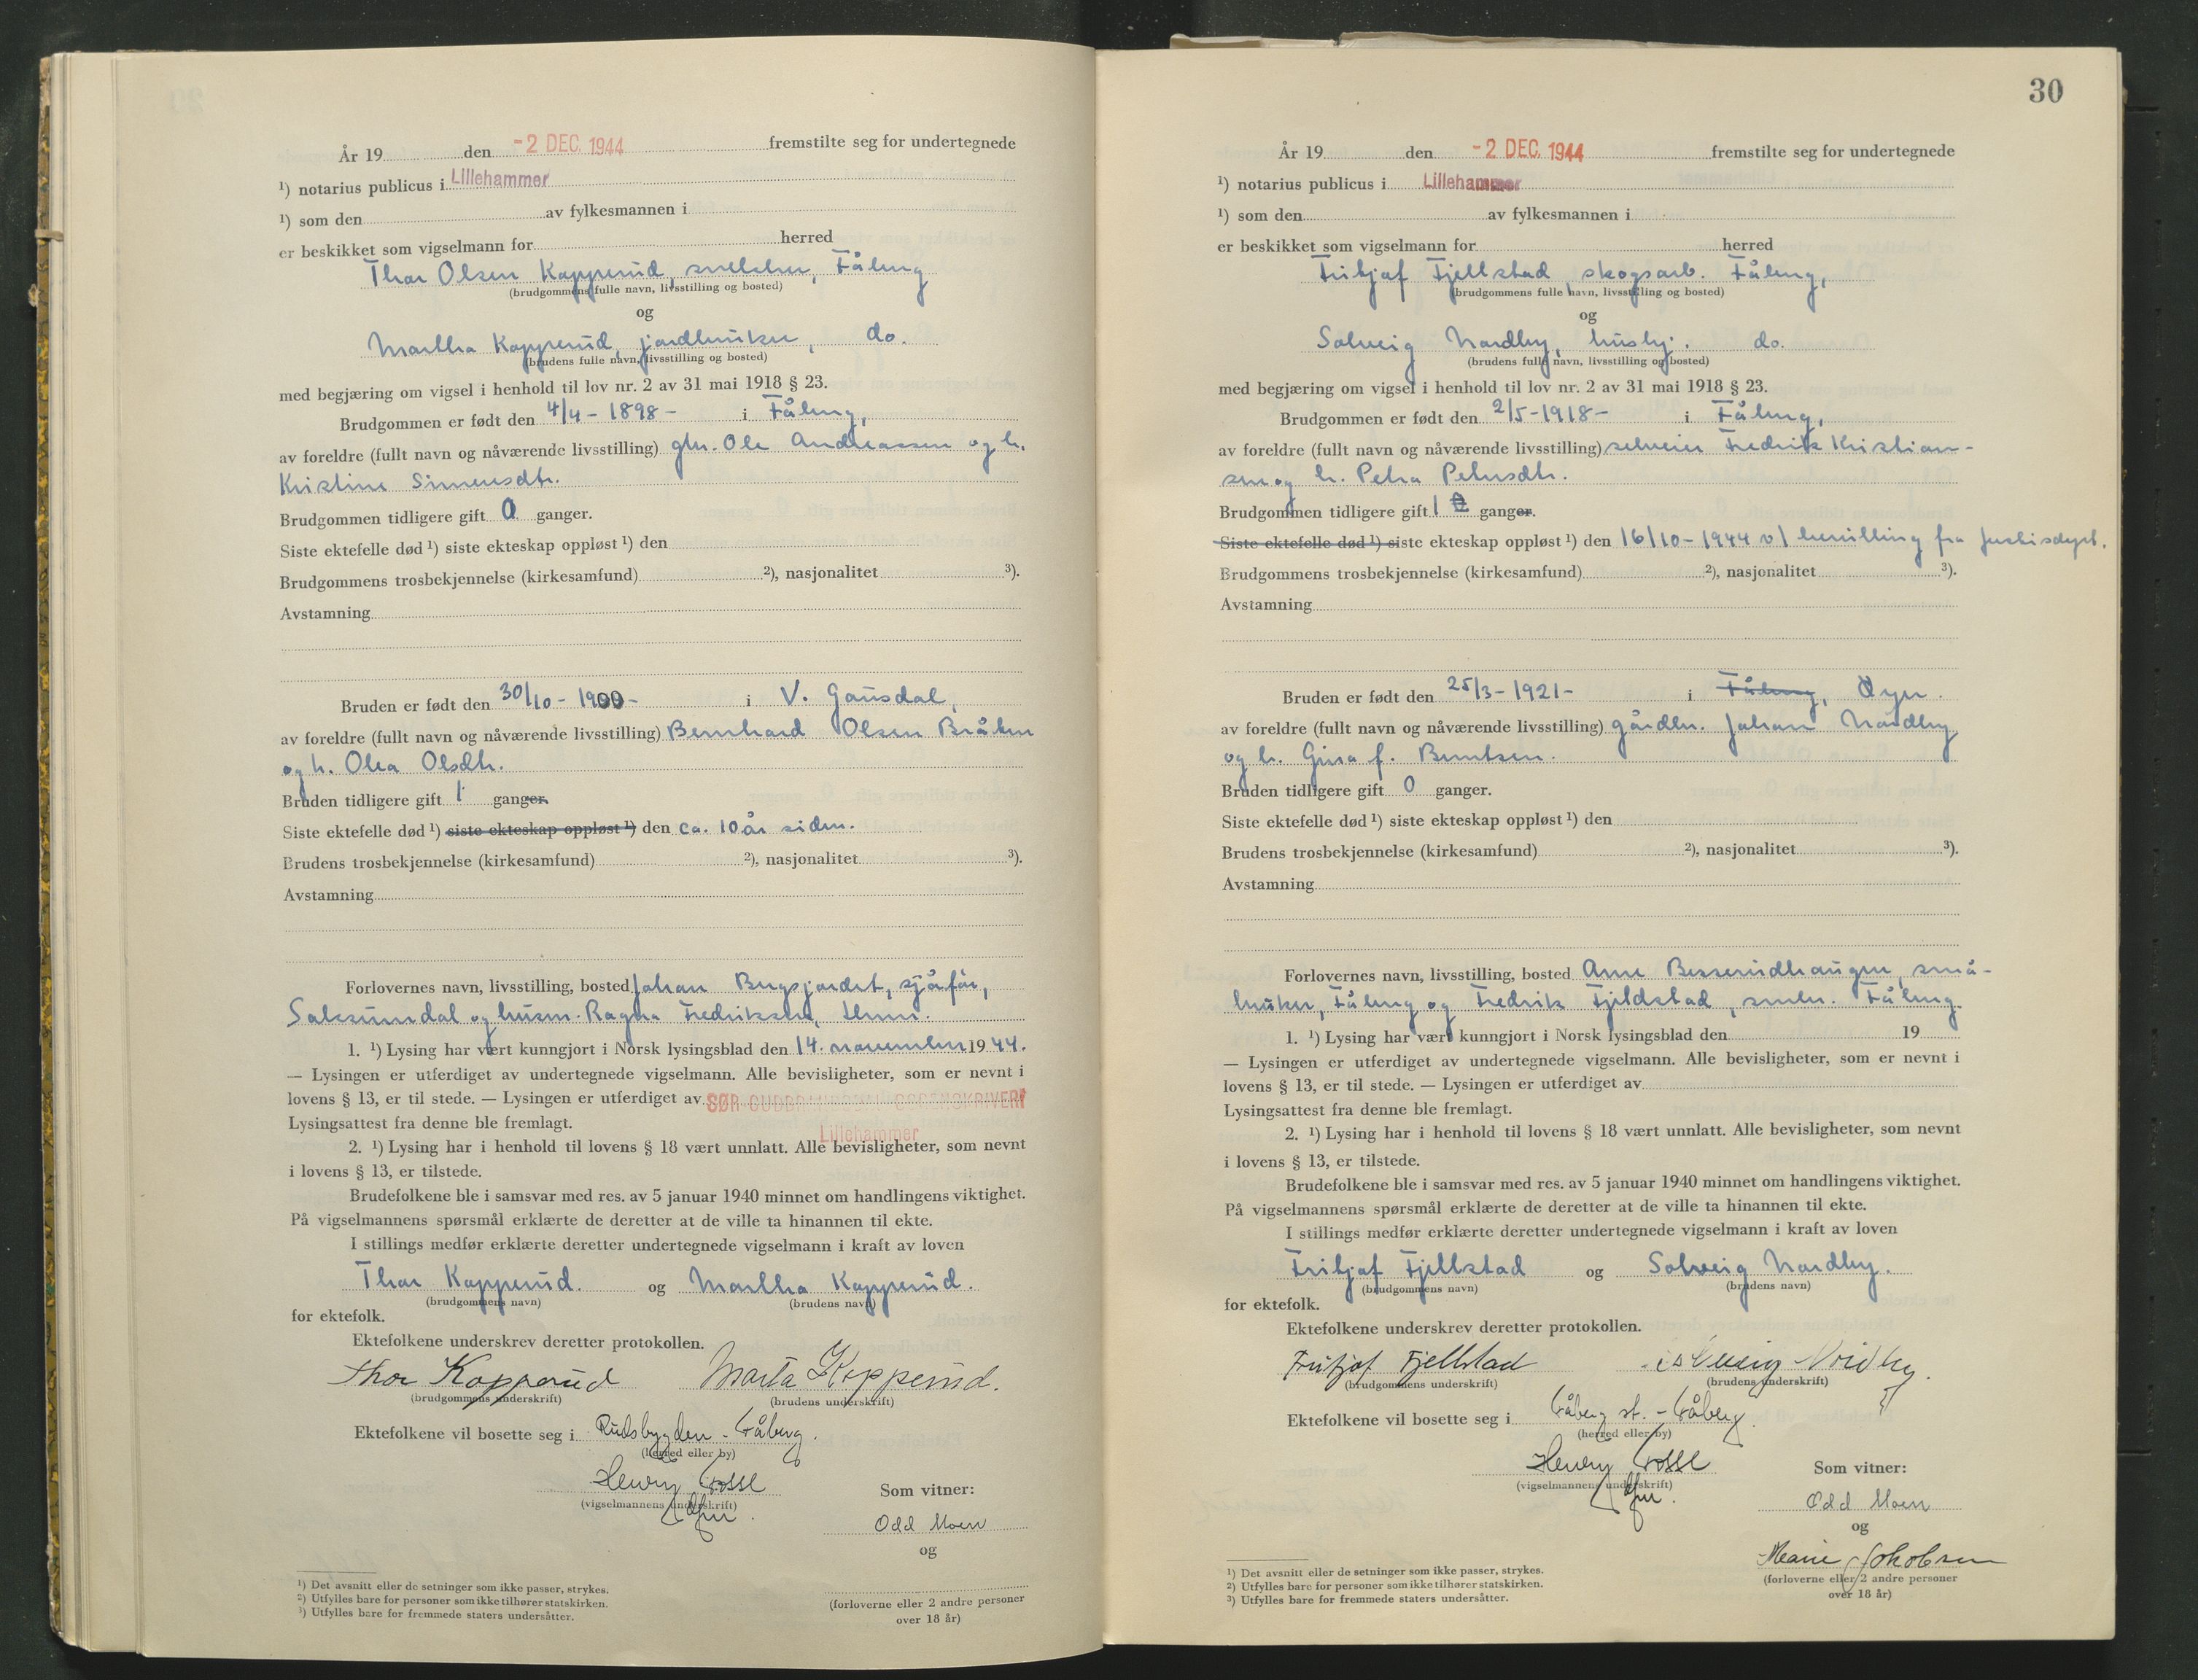 År 19 den -2 DEC. 1944 fremstilte seg for undertegnede
¹) notarius publicus i Lillehammer
¹) som den av fylkesmannen i
er beskikket som vigselmann for herred
Thor Olsen Kopperud, Fåberg
(brudgommens fulle navn, livsstilling og bosted)
og
Martha Kopperud, jordbruker, do.
(brudens fulle navn, livsstilling og bosted)
med begjæring om vigsel i henhold til lov nr. 2 av 31 mai 1918 § 23.
Brudgommen er født den 4/4 - 1898 - i Fåberg,
av foreldre (fullt navn og nåværende livsstilling) gbr. Ole Andreassen og h.
Kristine Simensdtr.
Brudgommen tidligere gift 0 ganger.
Siste ektefelle død ¹) siste ekteskap oppløst ¹) den
Brudgommens trosbekjennelse (kirkesamfund) ²), nasjonalitet ³).
Avstamning
Bruden er født den 30/10 - 1900 - i V. Gausdal,
av foreldre (fullt navn og nåværende livsstilling) Bernhard Olsen Bråten
og h. Olea Olsdtr.
Bruden tidligere gift 1 ganger.
Siste ektefelle død ¹) siste ekteskap oppløst ¹) den ca. 10 år siden.
Brudens trosbekjennelse (kirkesamfund) ²), nasjonalitet ³).
Avstamning
Forlovernes navn, livsstilling, bosted Johan Bergsjordet, sjåfør,
Saksumdal og husm. Ragna Fredriksen,
1. ¹) Lysing har vært kunngjort i Norsk lysingsblad den 14. november 1944.
— Lysingen er utferdiget av undertegnede vigselmann. Alle bevisligheter, som er nevnt i
lovens § 13, er til stede. — Lysingen er utferdiget av SØR-GUDBRANDSDAL SORENSKRIVERI
Lysingsattest fra denne ble fremlagt.
Lillehammer
2. ¹) Lysing har i henhold til lovens § 18 vært unnlatt. Alle bevisligheter, som nevnt
i lovens § 13, er tilstede.
Brudefolkene ble i samsvar med res. av 5 januar 1940 minnet om handlingens viktighet.
På vigselmannens spørsmål erklærte de deretter at de ville ta hinannen til ekte.
I stillings medfør erklærte deretter undertegnede vigselmann i kraft av loven
Thor Kopperud. og Martha Kopperud.
(brudgommens navn) (brudens navn)
for ektefolk.
Ektefolkene underskrev deretter protokollen.
Thor Kopperud Marta Kopperud.
(brudgommens underskrift) (brudens underskrift)
Ektefolkene vil bosette seg i Rudsbygden - Fåberg.
(herred eller by)
Henry Fosse
(vigselmannens underskrift)
Som vitner:
Odd Moen
og
(forloverne eller 2 andre personer
over 18 år)
¹) Det avsnitt eller de setninger som ikke passer, strykes.
²) Utfylles bare for personer som ikke tilhører statskirken.
³) Utfylles bare for fremmede staters undersåtter.
30
År 19 den -2 DEC. 1944 fremstilte seg for undertegnede
¹) notarius publicus i Lillehammer
¹) som den av fylkesmannen i
er beskikket som vigselmann for herred
Fritjof Fjellstad, skogsarb. Fåberg,
(brudgommens fulle navn, livsstilling og bosted)
og
Solveig Nordby, husbj. do.
(brudens fulle navn, livsstilling og bosted)
med begjæring om vigsel i henhold til lov nr. 2 av 31 mai 1918 § 23.
Brudgommen er født den 2/5 - 1918 - i Fåberg,
av foreldre (fullt navn og nåværende livsstilling) selveier Fredrik Kristian-
sen og h. Petra Petersdtr.
Brudgommen tidligere gift 1 ganger.
Siste ektefelle død ¹) siste ekteskap oppløst ¹) den 16/10 - 1944 v/ bevilling fra Justisdept.
Brudgommens trosbekjennelse (kirkesamfund) ²), nasjonalitet ³).
Avstamning
Bruden er født den 25/3 - 1921 - i Fåberg, Øyer.
av foreldre (fullt navn og nåværende livsstilling) gårdbr. Johan Nordby
og h. Gina f. Berntsen.
Bruden tidligere gift 0 ganger.
Siste ektefelle død ¹) siste ekteskap oppløst ¹) den
Brudens trosbekjennelse (kirkesamfund) ²), nasjonalitet ³).
Avstamning
Forlovernes navn, livsstilling, bosted Arne Besserudhaugen, små-
bruker, Fåberg og Fredrik Fjeldstad, småbr. Fåberg.
1. ¹) Lysing har vært kunngjort i Norsk lysingsblad den 19
— Lysingen er utferdiget av undertegnede vigselmann. Alle bevisligheter, som er nevnt i
lovens § 13, er til stede. — Lysingen er utferdiget av
Lysingsattest fra denne ble fremlagt.
2. ¹) Lysing har i henhold til lovens § 18 vært unnlatt. Alle bevisligheter, som nevnt
i lovens § 13, er tilstede.
Brudefolkene ble i samsvar med res. av 5 januar 1940 minnet om handlingens viktighet.
På vigselmannens spørsmål erklærte de deretter at de ville ta hinannen til ekte.
I stillings medfør erklærte deretter undertegnede vigselmann i kraft av loven
Fritjof Fjellstad og Solveig Nordby.
(brudgommens navn) (brudens navn)
for ektefolk.
Ektefolkene underskrev deretter protokollen.
Fritjof Fjellstad Solveig Nordby.
(brudgommens underskrift) (brudens underskrift)
Ektefolkene vil bosette seg i Fåberg st. - Fåberg.
(herred eller by)
Henry Fosse
(vigselmannens underskrift)
Som vitner:
Odd Moen
og
Marie Jakobsen
(forloverne eller 2 andre personer
over 18 år)
¹) Det avsnitt eller de setninger som ikke passer, strykes.
²) Utfylles bare for personer som ikke tilhører statskirken.
³) Utfylles bare for fremmede staters undersåtter.